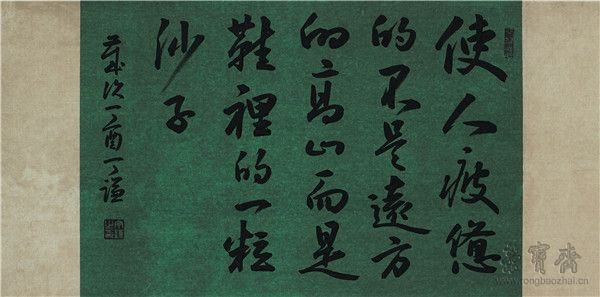 使人疲憊
的不是遠方
的高山而是
鞋裡的一粒
沙子
歲次丁酉丁謙
榮寶齋
www.rongbaozhai.cn